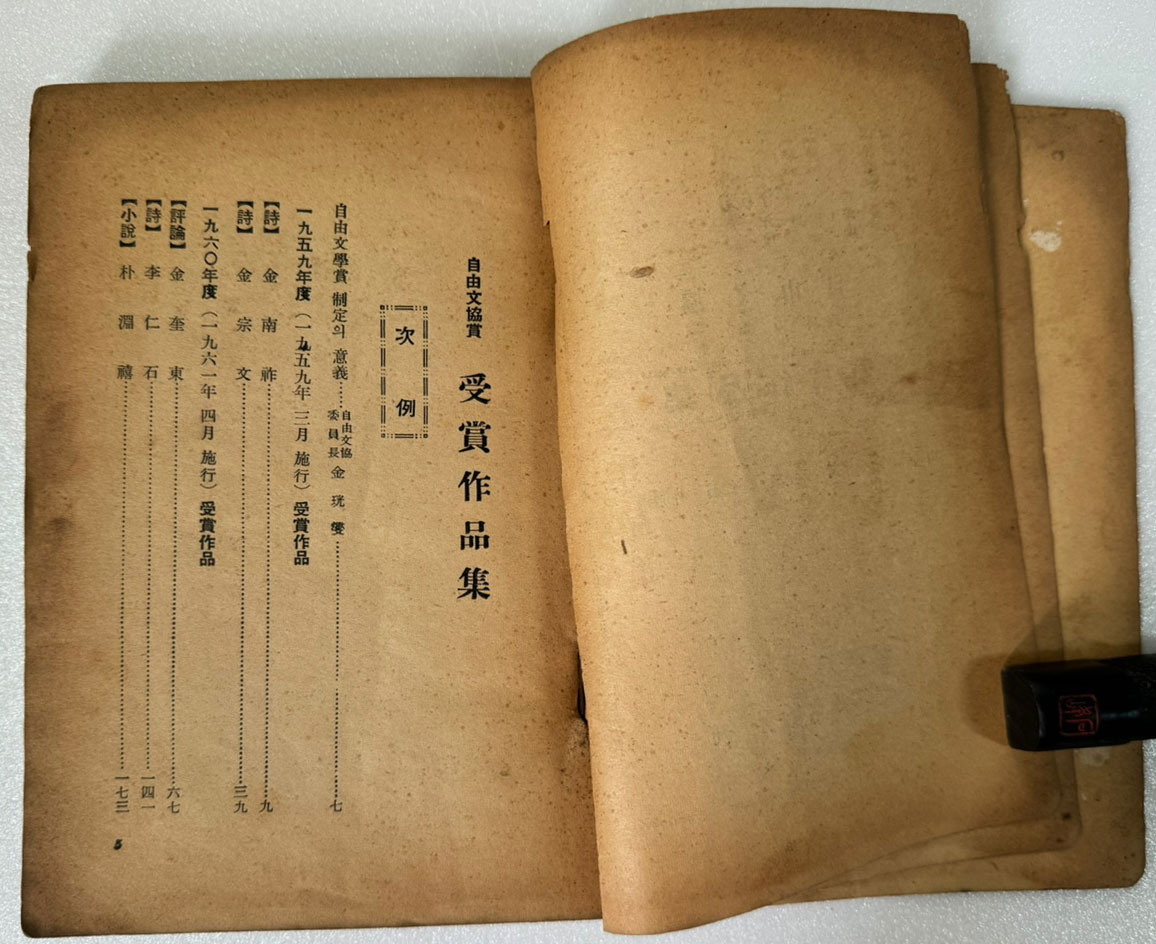 自由文協賞
受賞作品集
次例
自由文學賞 制定의 意義……自由文協委員長 金珖燮……七
一九五九年度(一九五九年 三月 施行)受賞作品
【詩】金南祚……九
【詩】金宗文……三九
一九六〇年度(一九六一年 四月 施行)受賞作品
【評論】金奎東……六七
【詩】李仁石……一四一
【小說】朴淵禧……一七三
5